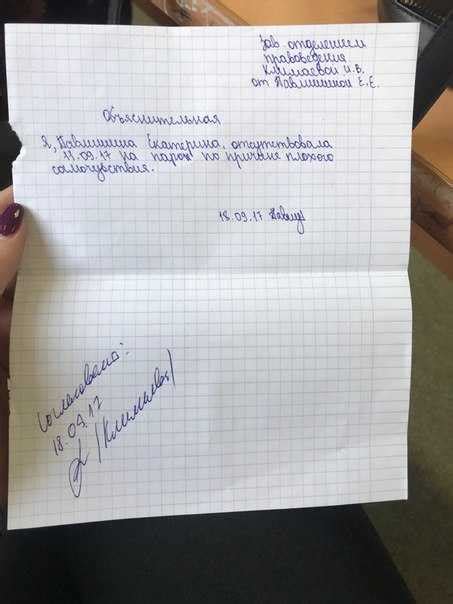 Зав отделением
правоведения
Климаевой И.В.
от Павлишиной Е.Е.
Объяснительная
Я, Павлишина Екатерина, отсутствовала
11.09.17 на парах по причине плохого
самочувствия.
18.09.17
Согласовано:
18.09.17